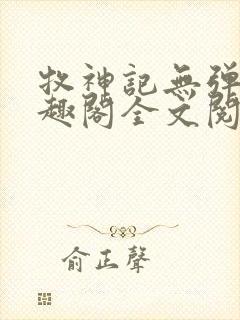 牧神記無彈
趣閣全文閱
俞正聲